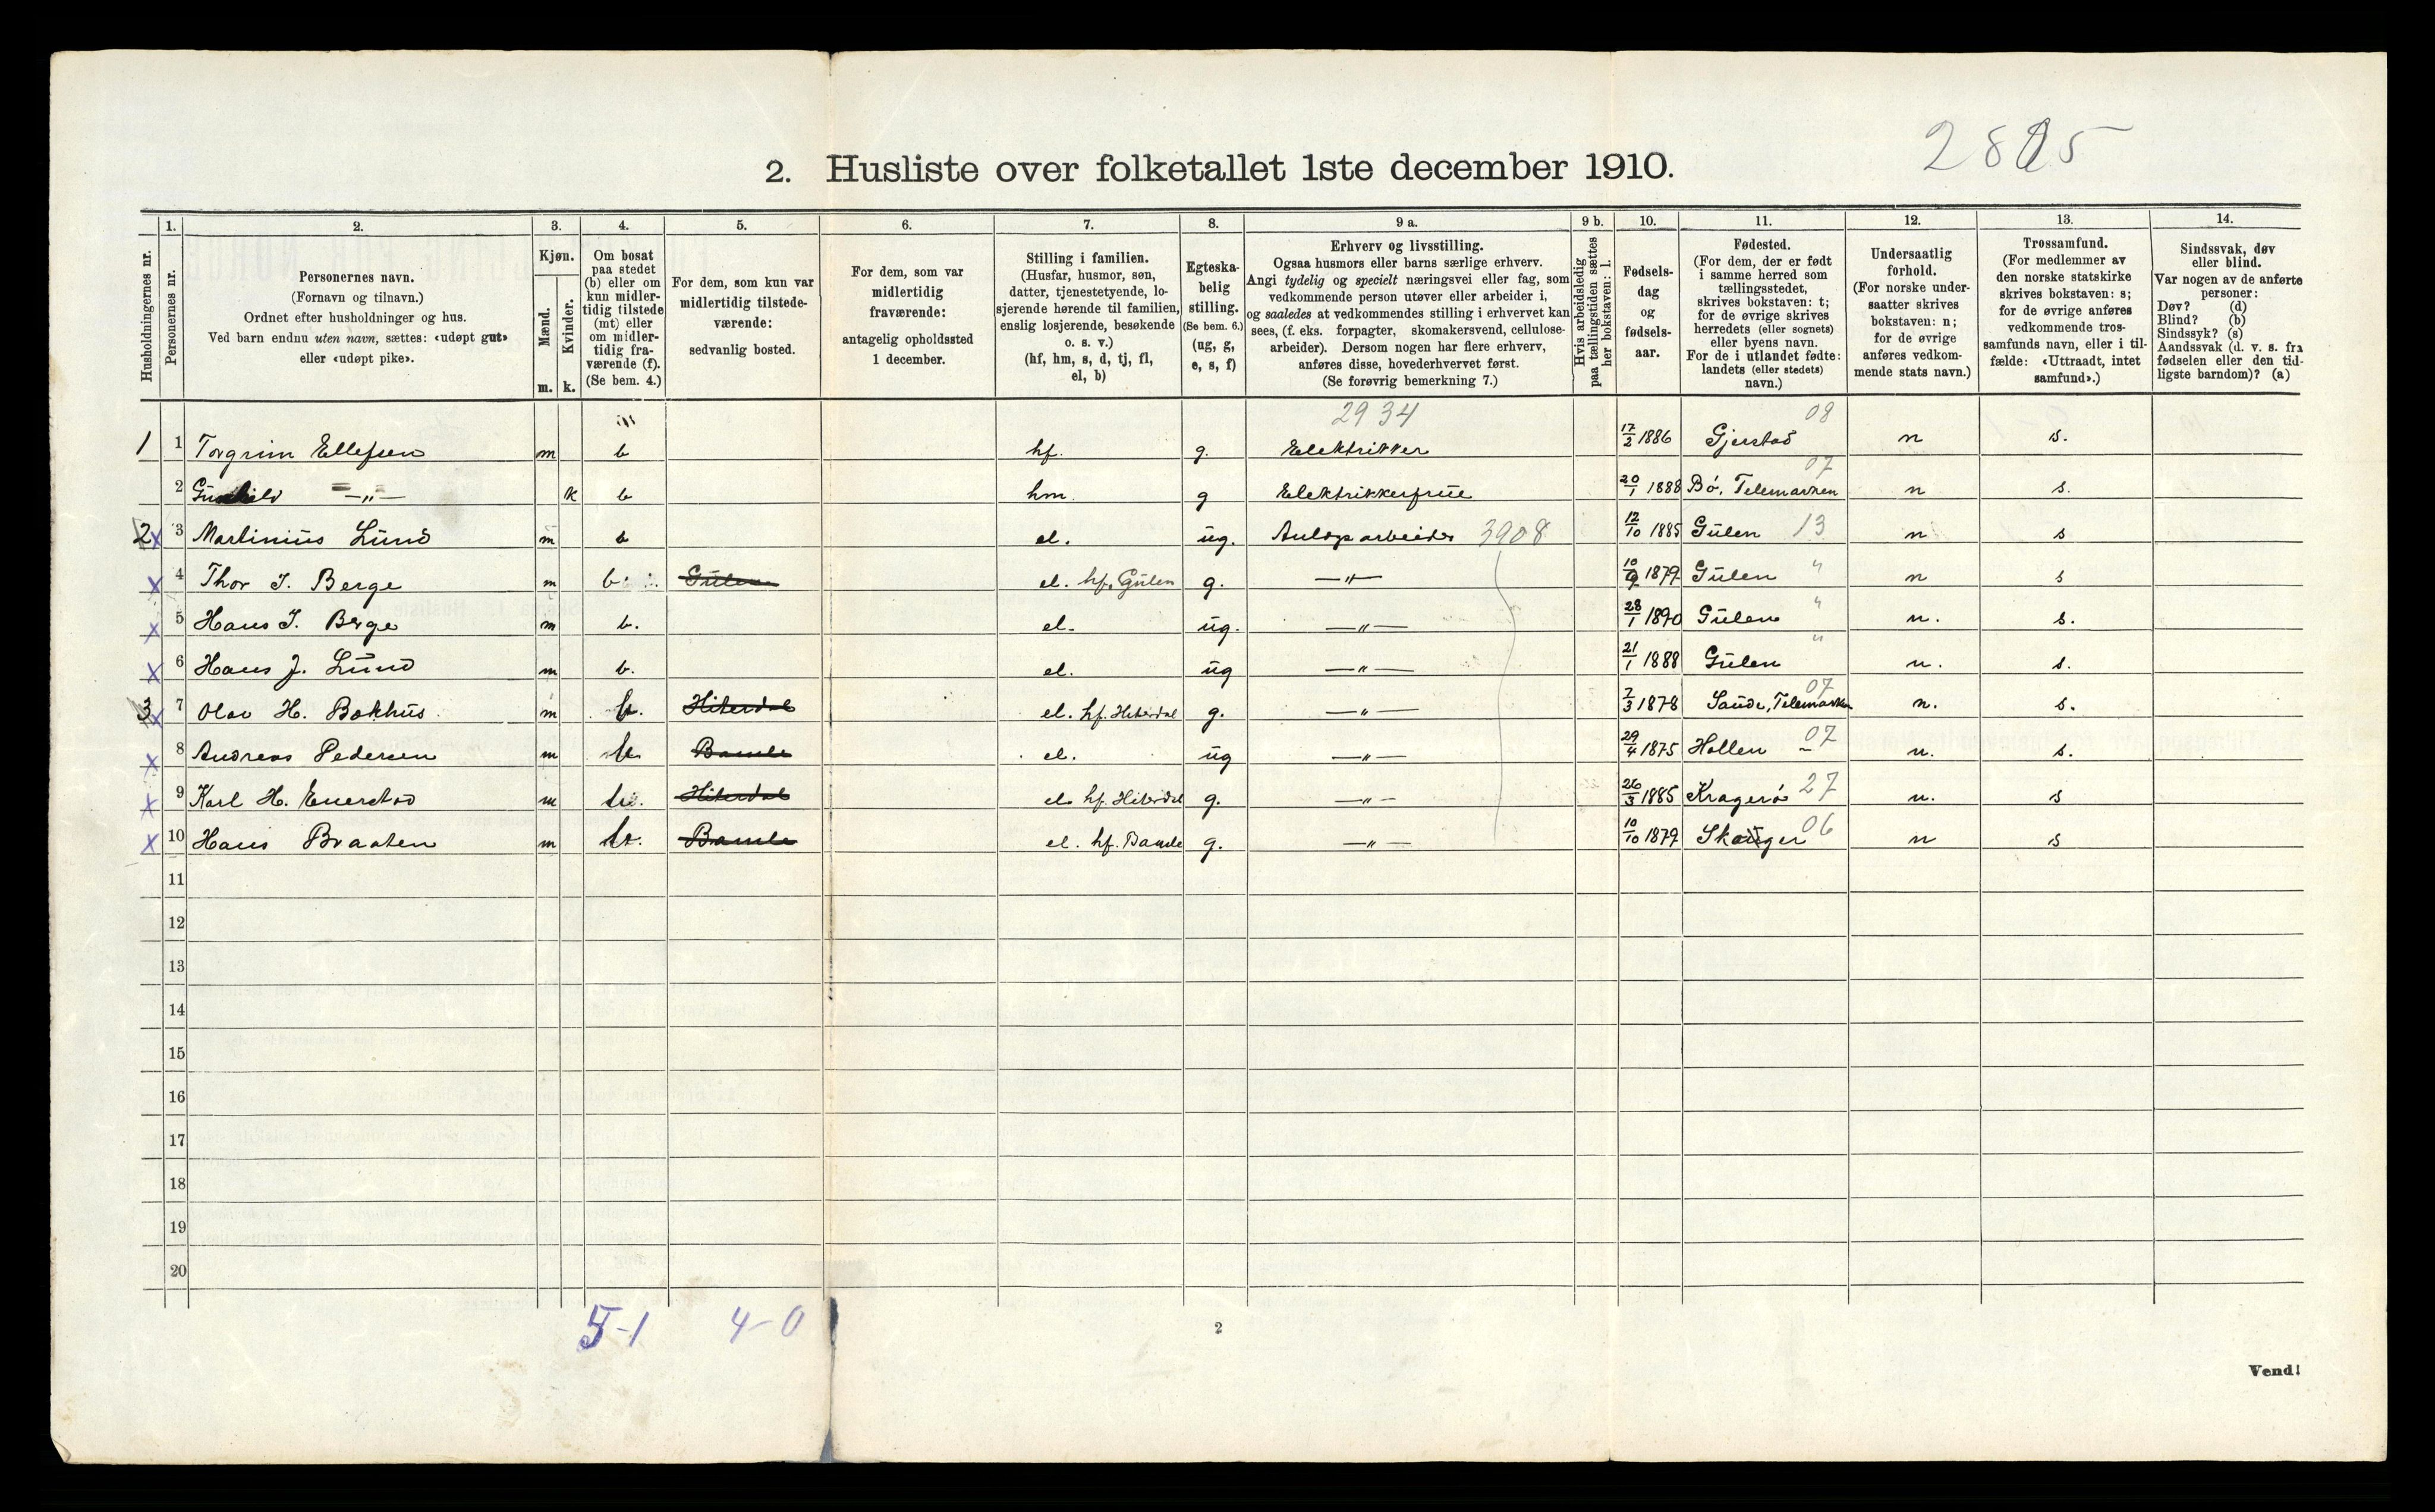 2. Husliste over folketallet 1ste december 1910.
28 5
1. 2. 3. 4. 5. 6. 7. 8. 9 a. 9 b. 10. 11. 12. 13. 14.
Husholdningernes nr.
Personernes nr.
Personernes navn.
(Fornavn og tilnavn.)
Ordnet efter husholdninger og hus.
Ved barn endnu uten navn, sættes: «udøpt gut»
eller «udøpt pike».
Kjøn.
Mænd.
m.
Kvinder.
k.
Om bosat
paa stedet
(b) eller om
kun midler-
tidig tilstede
(mt) eller
om midler-
tidig fra-
værende (f).
(Se bem. 4.)
For dem, som kun var
midlertidig tilstede-
værende:
sedvanlig bosted.
For dem, som var
midlertidig
fraværende:
antagelig opholdssted
1 december.
Stilling i familien.
(Husfar, husmor, søn,
datter, tjenestetyende, lo-
sjerende hørende til familien,
enslig losjerende, besøkende
o. s. v.)
(hf, hm, s, d, tj, fl,
el, b)
Egteska-
belig
stilling.
(Se bem. 6.)
(ug, g,
e, s, f)
Erhverv og livsstilling.
Ogsaa husmors eller barns særlige erhverv.
Angi tydelig og specielt næringsvei eller fag, som
vedkommende person utøver eller arbeider i,
og saaledes at vedkommendes stilling i erhvervet kan
sees, (f. eks. forpagter, skomakersvend, cellulose-
arbeider). Dersom nogen har flere erhverv,
anføres disse, hovederhvervet først.
(Se forøvrig bemerkning 7.)
Hvis arbeidsledig
paa tællingstiden sættes
her bokstaven: l.
Fødsels-
dag
og
fødsels-
aar.
Fødested.
(For dem, der er født
i samme herred som
tællingsstedet,
skrives bokstaven: t;
for de øvrige skrives
herredets (eller sognets)
eller byens navn.
For de i utlandet fødte:
landets (eller stedets)
navn.)
Undersaatlig
forhold.
(For norske under-
saatter skrives
bokstaven: n;
for de øvrige
anføres vedkom-
mende stats navn.)
Trossamfund.
(For medlemmer av
den norske statskirke
skrives bokstaven: s;
for de øvrige anføres
vedkommende tros-
samfunds navn, eller i til-
fælde: «Uttraadt, intet
samfund».)
Sindssvak, døv
eller blind.
Var nogen av de anførte
personer:
Døv? (d)
Blind? (b)
Sindssyk? (s)
Aandssvak (d. v. s. fra
fødselen eller den tid-
ligste barndom)? (a)
2934 08
1 1 Torgrim Ellefsen m b hf. g. Elektrikker 17/2 1886 Gjerstad n s.
07
2 Gunhild —"— k b hm. g Elektrikkerfrue 20/1 1888 Bø, Telemarken n s.
2 x 3 Martinius Lund m b el. ug. Anlægsarbeider 3908 12/10 1885 Gulen 13 n s
x 4 Thor I. Berge m b. Gulen el. hf. Gulen g. —"— 10/9 1879 Gulen " n s
x 5 Hans I. Berge m b. el. ug. —"— 28/1 1890 Gulen " n. s.
x 6 Hans J. Lund m b. el. ug —"— 21/1 1888 Gulen " n. s.
3 x 7 Olav H. Bakhus m b. Hiterdal el. hf. Hiterdal g. —"— 7/3 1878 Saude, Telemarken 07 n. s.
x 8 Andreas Pedersen m b Bamle el. ug —"— 29/4 1875 Hollen 07 n. s.
x 9 Karl H. Enerstad m b. Hiterdal el. hf. Hiterdal g. —"— 26/3 1885 Kragerø 27 n. s
x 10 Hans Braaten m b. Bamle el. hf. Bamle g. —"— 10/10 1879 Skauger 06 n s
11
12
13
14
15
16
17
18
19
20
5-1 4-0
2
Vend!